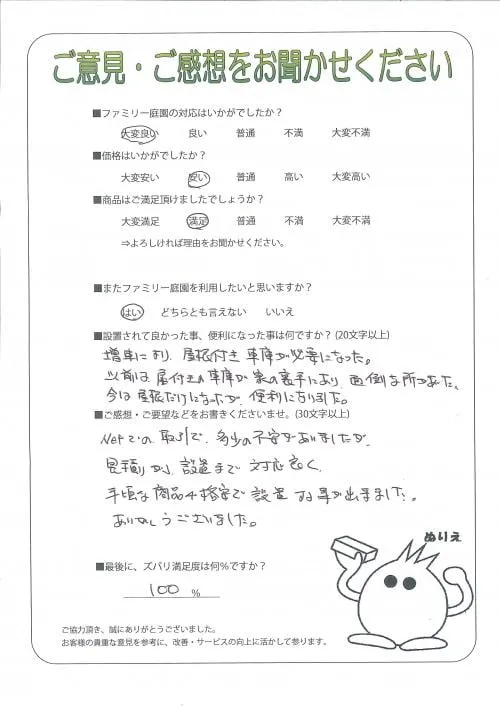 ご意見・ご感想をお聞かせください
■ファミリー庭園の対応はいかがでしたか？
大変良い 良い 普通 不満 大変不満
■価格はいかがでしたか？
大変安い 安い 普通 高い 大変高い
■商品はご満足頂けましたでしょうか？
大変満足 満足 普通 不満 大変不満
⇒よろしければ理由をお聞かせください。
■またファミリー庭園を利用したいと思いますか？
はい どちらとも言えない いいえ
■設置されて良かった事、便利になった事は何ですか？(20文字以上)
増車にあり、屋根付き車庫が必要になった。
以前は屋付きの車庫が家の裏手にあり、面倒な所があった、
今は屋根だけになったが、便利になりました。
■ご感想・ご要望などをお書きくださいませ。(30文字以上)
Netでの取引で、多少の不安がありましたが、
見積りから設置まで対応良く、
手頃な商品を格安で設置する事が出来ました。
ありがとうございました。
ぬりえ
■最後に、ズバリ満足度は何%ですか？
100 %
ご協力頂き、誠にありがとうございました。
お客様の貴重な意見を参考に、改善・サービスの向上に活かして参ります。